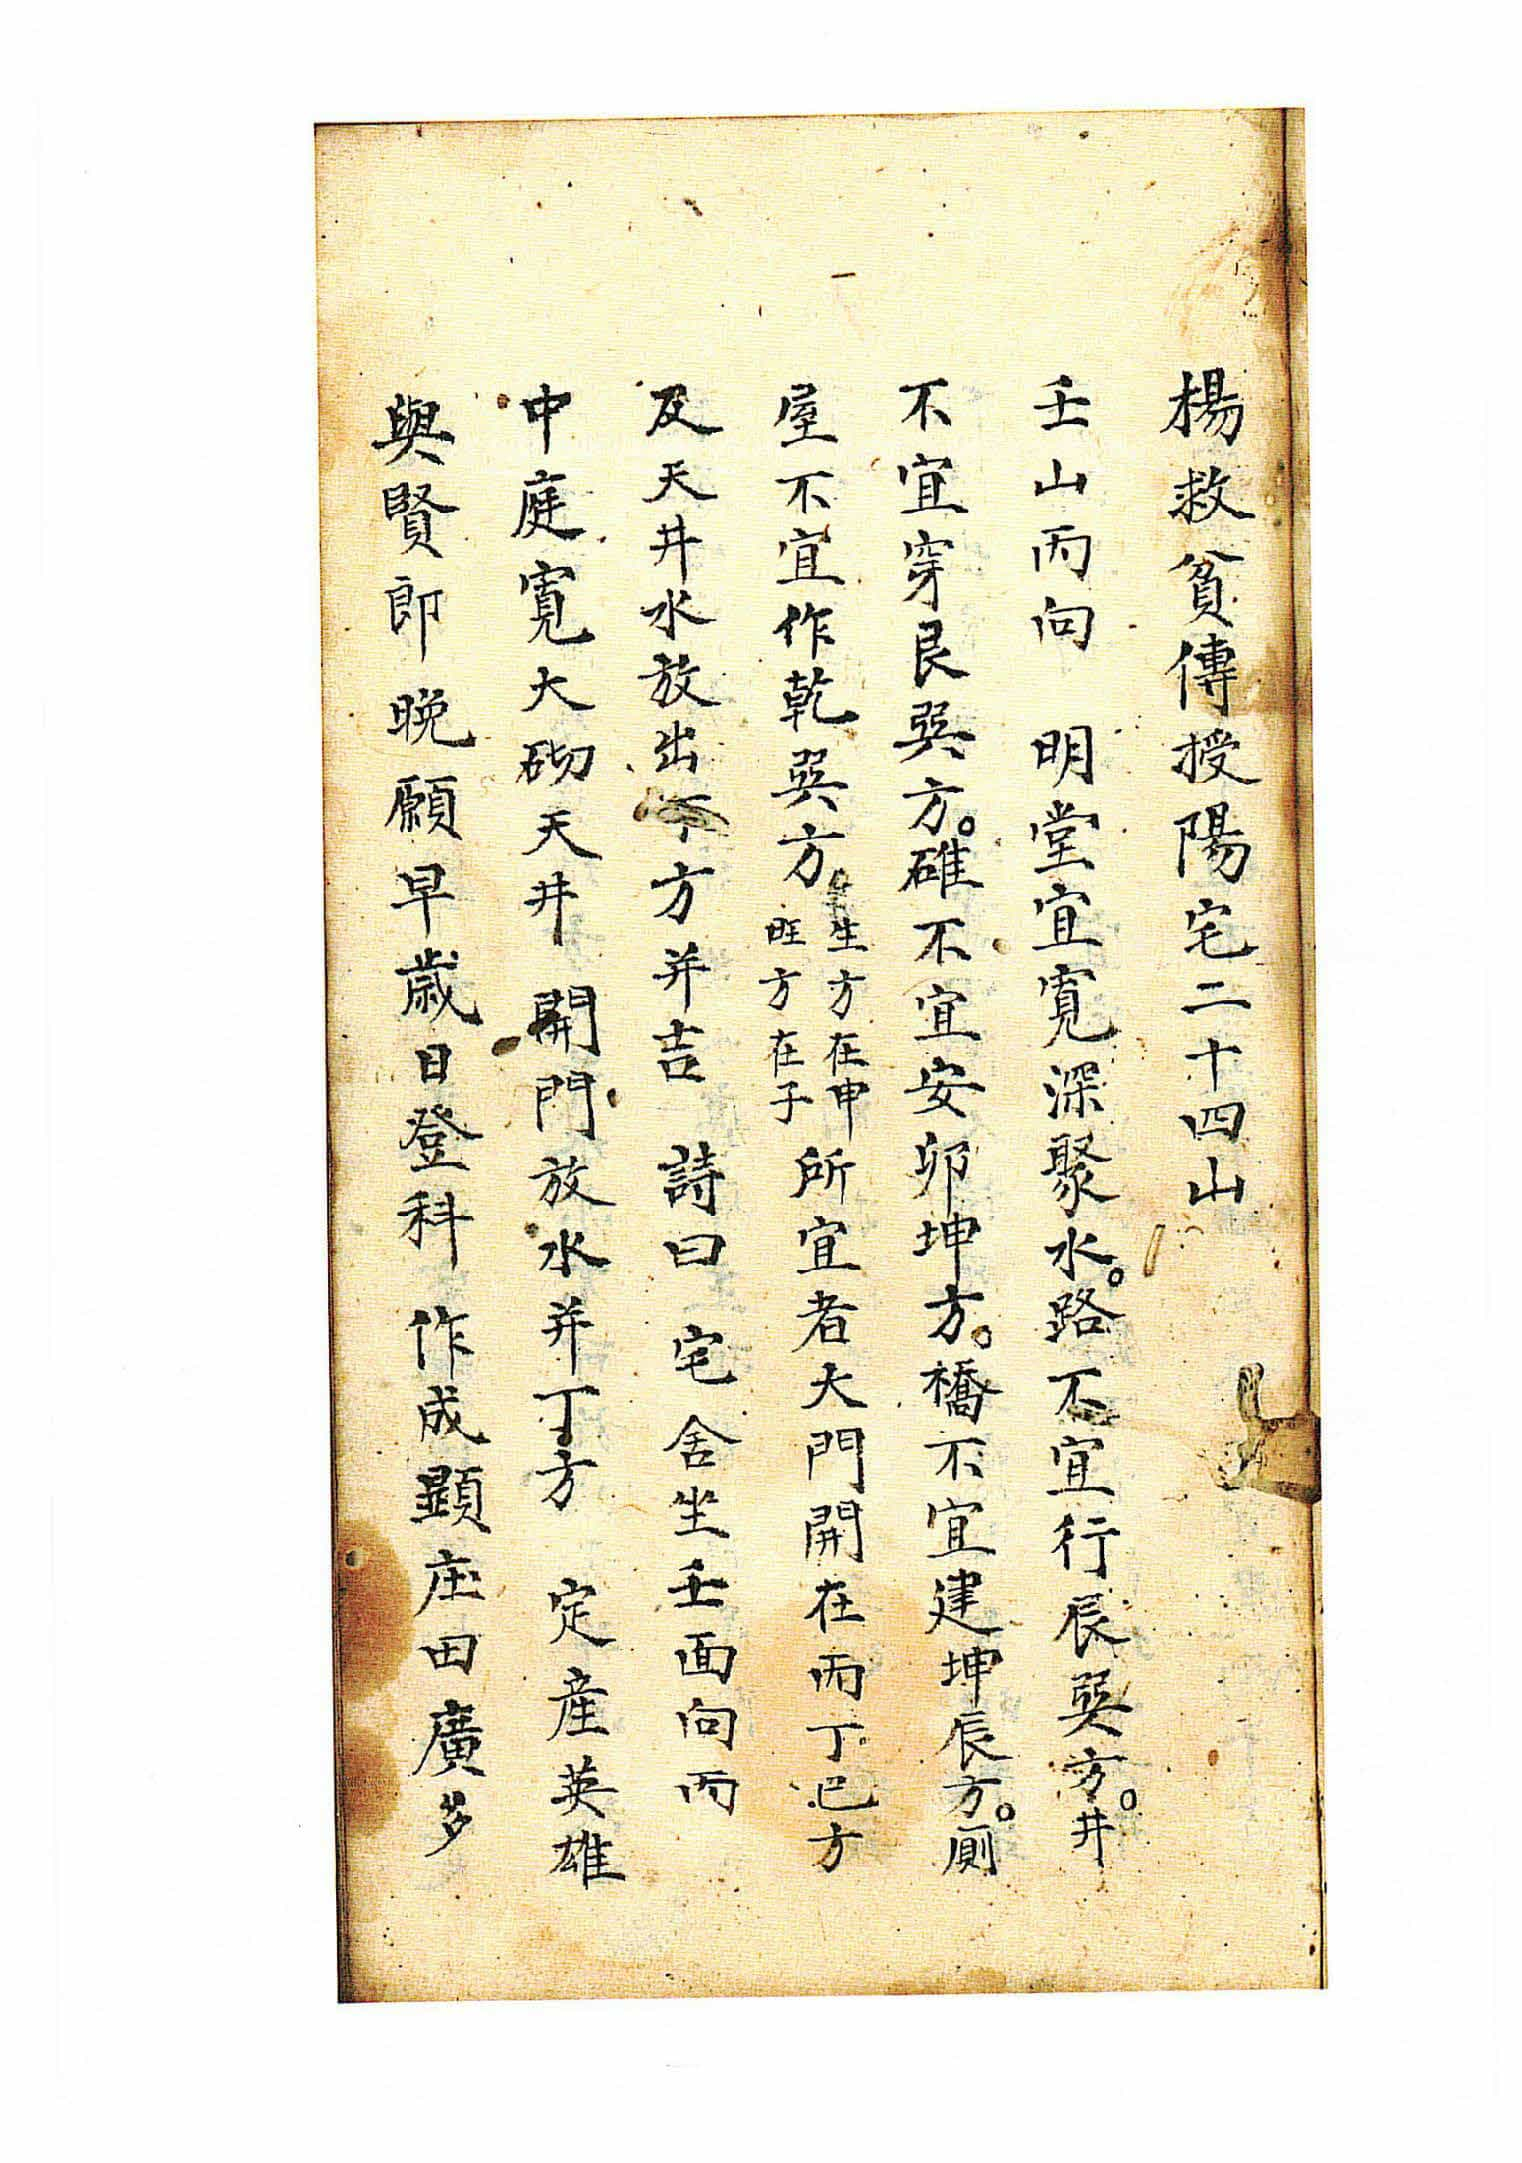 楊救貧傳授陽宅二十四山
壬山丙向　明堂宜寬深聚水。路不宜行辰巽方。井
不宜穿艮巽方。碓不宜安卯坤方。橋不宜建坤辰方。厠
屋不宜作乾巽方。生方在申旺方在子所宜者大門開在丙丁巳方
及天井水放出丁方并吉　詩曰　宅舍坐壬面向丙
中庭寬大砌天井　開門放水并丁方　定産英雄
與賢郎　晩願早歲日登科　作成顕庄田廣多